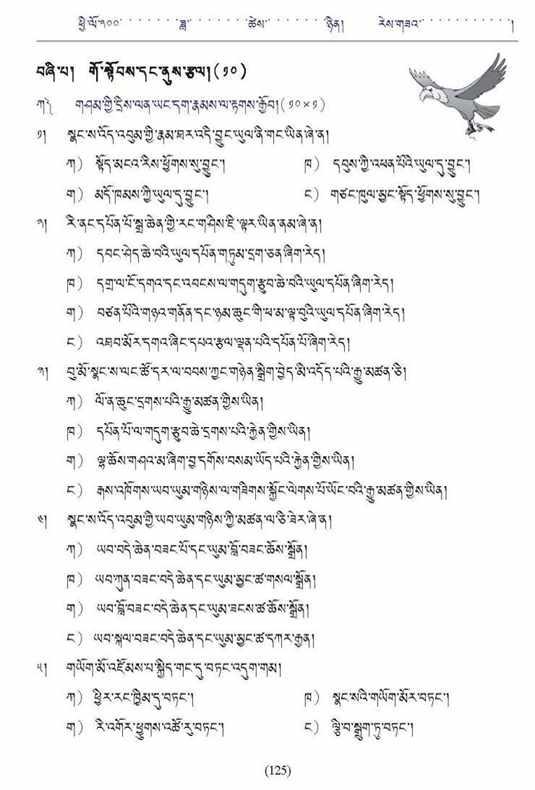 ཕྱི་ལོ་༢༠༠ ཟླ་ ཚེས་ ཉིན། རེས་གཟའ་ །
བཞི་པ། གོ་སྟོབས་དང་ནུས་རྩལ།(༡༠)
ཀ༽ གཤམ་གྱི་དྲིས་ལན་ཡང་དག་རྣམས་ལ་རྟགས་རྒྱོབ།(༡༠×༡)
༡། སྣང་ས་འོད་འབུམ་གྱི་རྣམ་ཐར་འདི་བྱུང་ཡུལ་ནི་གང་ཡིན་ཞེ་ན།
ཀ) སྟོད་མངའ་རིས་ཕྱོགས་སུ་བྱུང་། ཁ) དབུས་ཀྱི་འཕན་པོའི་ཡུལ་དུ་བྱུང་།
ག) མདོ་ཁམས་ཀྱི་ཡུལ་དུ་བྱུང་། ང) གཙང་ཁུལ་མྱང་སྟོད་ཕྱོགས་སུ་བྱུང་།
༢། རི་ནང་དཔོན་པོ་སྒྲ་ཆེན་གྱི་རང་གཤིས་ཇི་ལྟར་ཡིན་ནམ་ཞེ་ན།
ཀ) དབང་ཤེད་ཆེ་བའི་ཡུལ་དཔོན་གཏུམ་དྲག་ཅན་ཞིག་རེད།
ཁ) དགྲ་ལ་ངོ་དགའ་དང་འབངས་ལ་གདུག་རྩུབ་ཆེ་བའི་ཡུལ་དཔོན་ཞིག་རེད།
ག) བཙན་པོའི་གཉའ་གནོན་དང་ཉམ་ཆུང་གི་ཕ་མ་ལྟ་བུའི་ཡུལ་དཔོན་ཞིག་རེད།
ང) འཐབ་མོར་དགའ་ཞིང་དཔའ་རྩལ་ལྡན་པའི་དཔོན་པོ་ཞིག་རེད།
༣། བུ་མོ་སྣང་ས་ལང་ཚོ་དར་ལ་བབས་ཀྱང་གཉེན་སྒྲིག་བྱེད་མི་འདོད་པའི་རྒྱུ་མཚན་ཅི།
ཀ) ལོ་ན་ཆུང་དྲགས་པའི་རྒྱུ་མཚན་གྱིས་ཡིན།
ཁ) དཔོན་པོ་ལ་གདུག་རྩུབ་ཆེ་དྲགས་པའི་རྐྱེན་གྱིས་ཡིན།
ག) ལྷ་ཆོས་གཤའ་མ་ཞིག་བྱ་དགོས་བསམ་ཡོད་པའི་རྐྱེན་གྱིས་ཡིན།
ང) རྒས་འཁོགས་ཡབ་ཡུམ་གཉིས་ལ་གཟིགས་སྐྱོང་ལེགས་པོ་ཡོང་བའི་རྒྱུ་མཚན་གྱིས་ཡིན།
༤། སྣང་ས་འོད་འབུམ་གྱི་ཡབ་ཡུམ་གཉིས་ཀྱི་མཚན་ལ་ཅི་ཟེར་ཞེ་ན།
ཀ) ཡབ་བདེ་ཆེན་བཟང་པོ་དང་ཡུམ་བློ་བཟང་ཆོས་སྒྲོན།
ཁ) ཡབ་ཀུན་བཟང་བདེ་ཆེན་དང་ཡུམ་མྱང་ཚ་གསལ་སྒྲོན།
ག) ཡབ་བློ་བཟང་བདེ་ཆེན་དང་ཡུམ་ཟངས་ཚ་ཆོས་སྒྲོན།
ང) ཡབ་སྐལ་བཟང་བདེ་ཆེན་དང་ཡུམ་མྱང་ཚ་དཀར་རྒྱན།
༥། གཡོག་མོ་འཛོམས་པ་སྐྱིད་གང་དུ་བཏང་འདུག་གམ།
ཀ) ཕྱིར་རང་ཁྱིམ་དུ་བཏང་། ཁ) སྣང་སའི་གཡོག་མོར་བཏང་།
ག) རི་འགོར་ཕྱུགས་འཚོ་རུ་བཏང་། ང) ལྕི་བ་སྒྲུག་ཏུ་བཏང་།
(125)